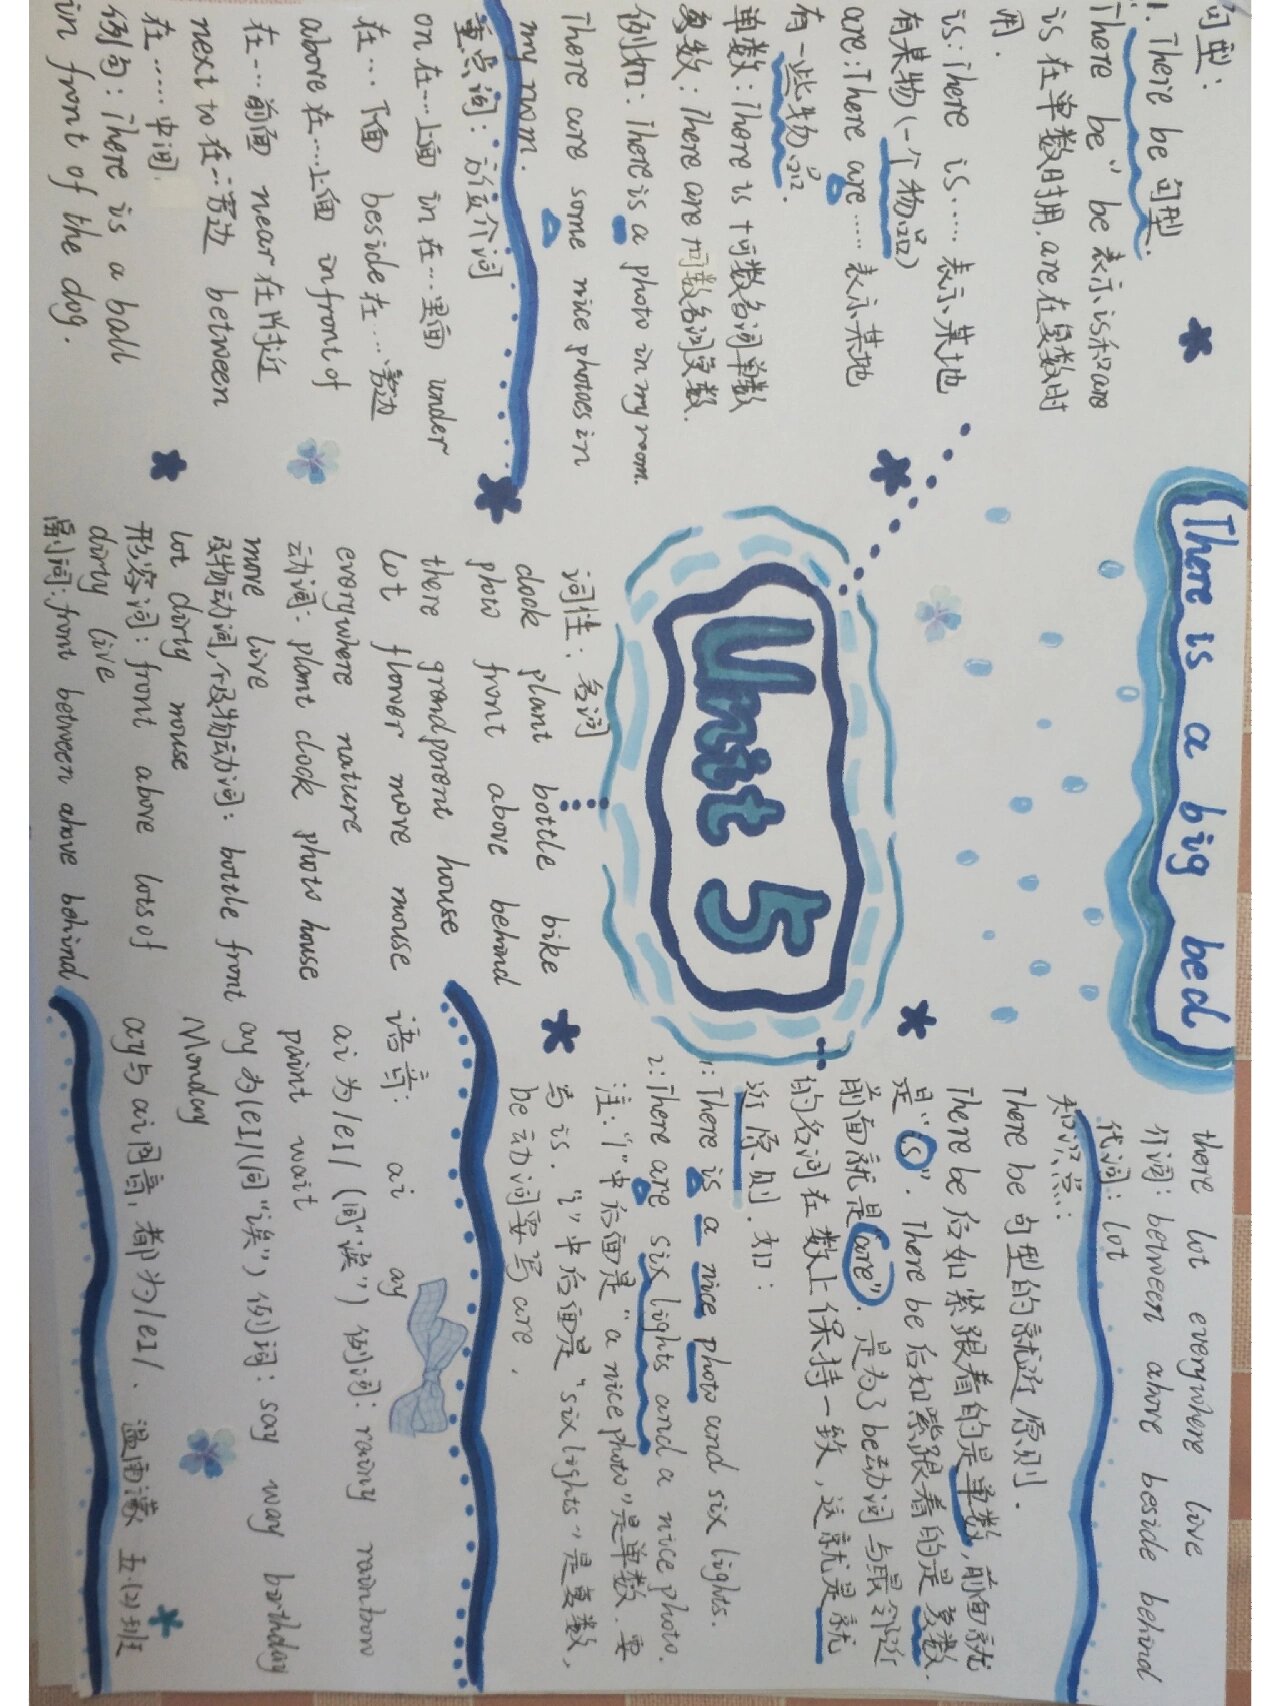 There is a big bed
Unit 5
句型:
1. There be 句型.
"There be" be 表示 is和are
is 在单数时用,are在复数时
用.
is: There is …… 表示某地
有某物(一个物品)
are: There are …… 表示某地
有一些物品.
单数: There is + 可数名词单数
复数: There are 可数名词复数.
例如: There is a photo in my room.
There are some nice photoes in
my room.
重点词: 方位介词
on 在…上面 in 在…里面 under
在…下面 beside 在…旁边
above 在……上面 in front of
在…前面 near 在附近
next to 在…旁边 between
在……中间.
例句: There is a ball
in front of the dog.
词性: 名词
clock plant bottle bike
photo front above behind
there grandparent house
lot flower move mouse
everywhere nature
动词: plant clock photo house
move live
及物动词,不及物动词: bottle front
lot dirty mouse
形容词: front above lots of
dirty live
副词: front between above behind
there lot everywhere live
介词: between above beside behind
代词: lot
知识点:
There be 句型的就近原则.
There be 后如紧跟着的是单数,前面就
是"is". There be 后如紧跟着的是复数.
前面就是"are". 是为了be动词与最邻近
的名词在数上保持一致,这就是就
近原则.如:
1: There is a nice photo and six lights.
2: There are six lights and a nice photo.
注: "1"中后面是"a nice photo"是单数.要
写is. "2"中后面是"six lights"是复数,
be动词要写are.
语音: ai ay
ai 为/eI/ (同"诶") 例词: rainy rainbow
paint wait
ay 为/eI/ (同"诶") 例词: say way birthday
Monday
ay与ai同音,都为/eI/. 温雨濛 五(2)班